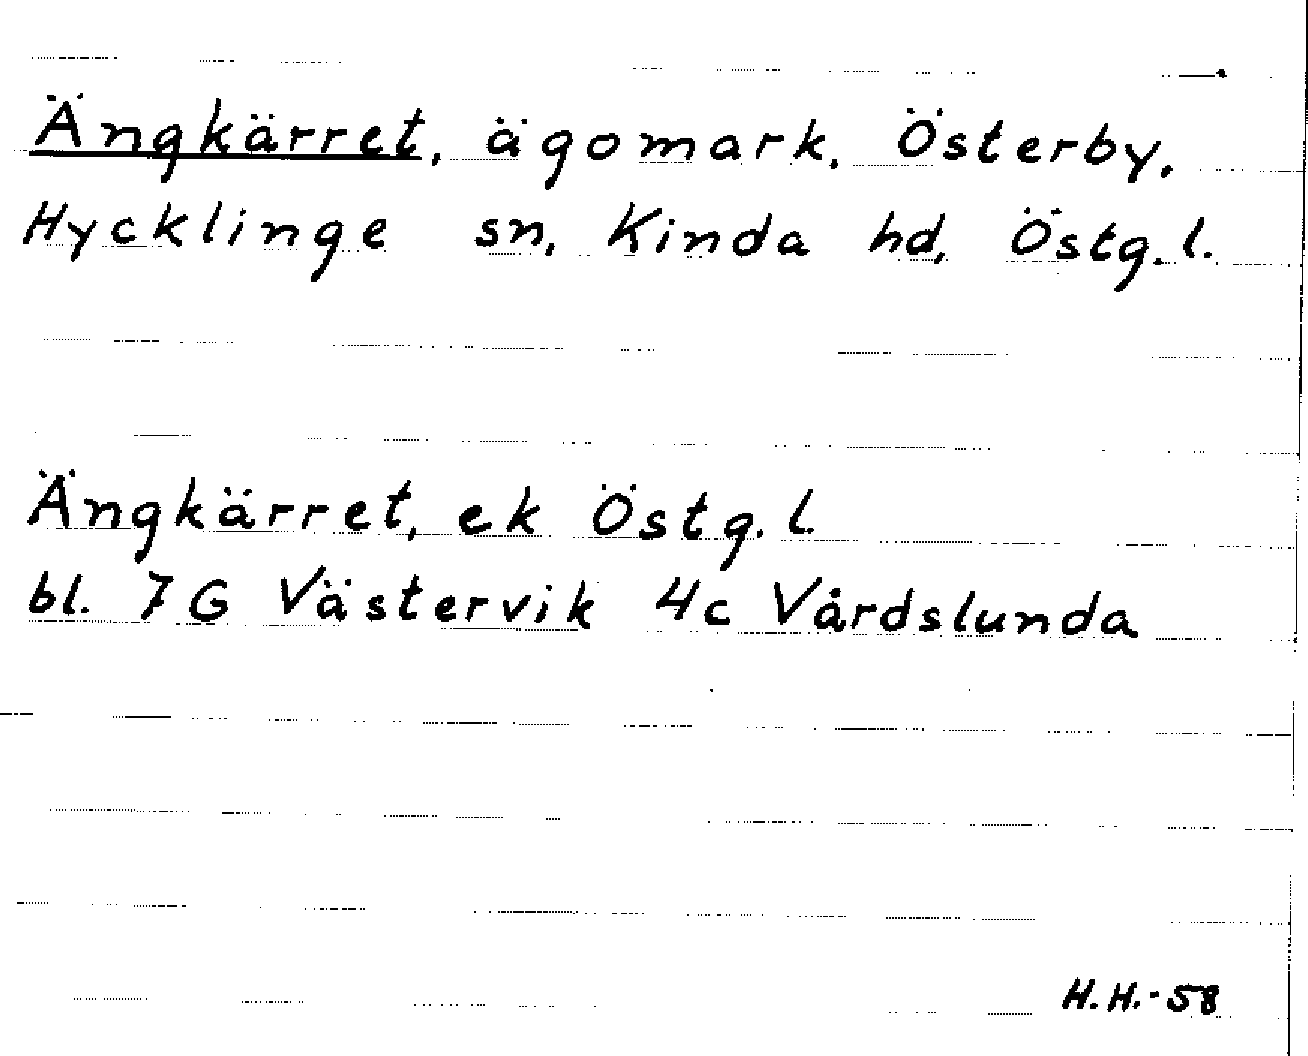 Ängkärret, ägomark, Österby,
Hycklinge sn, Kinda hd, Östg. l.
Ängkärret, ek Östg. l.
bl. 7G Västervik 4c Vårdslunda
H.H.-58